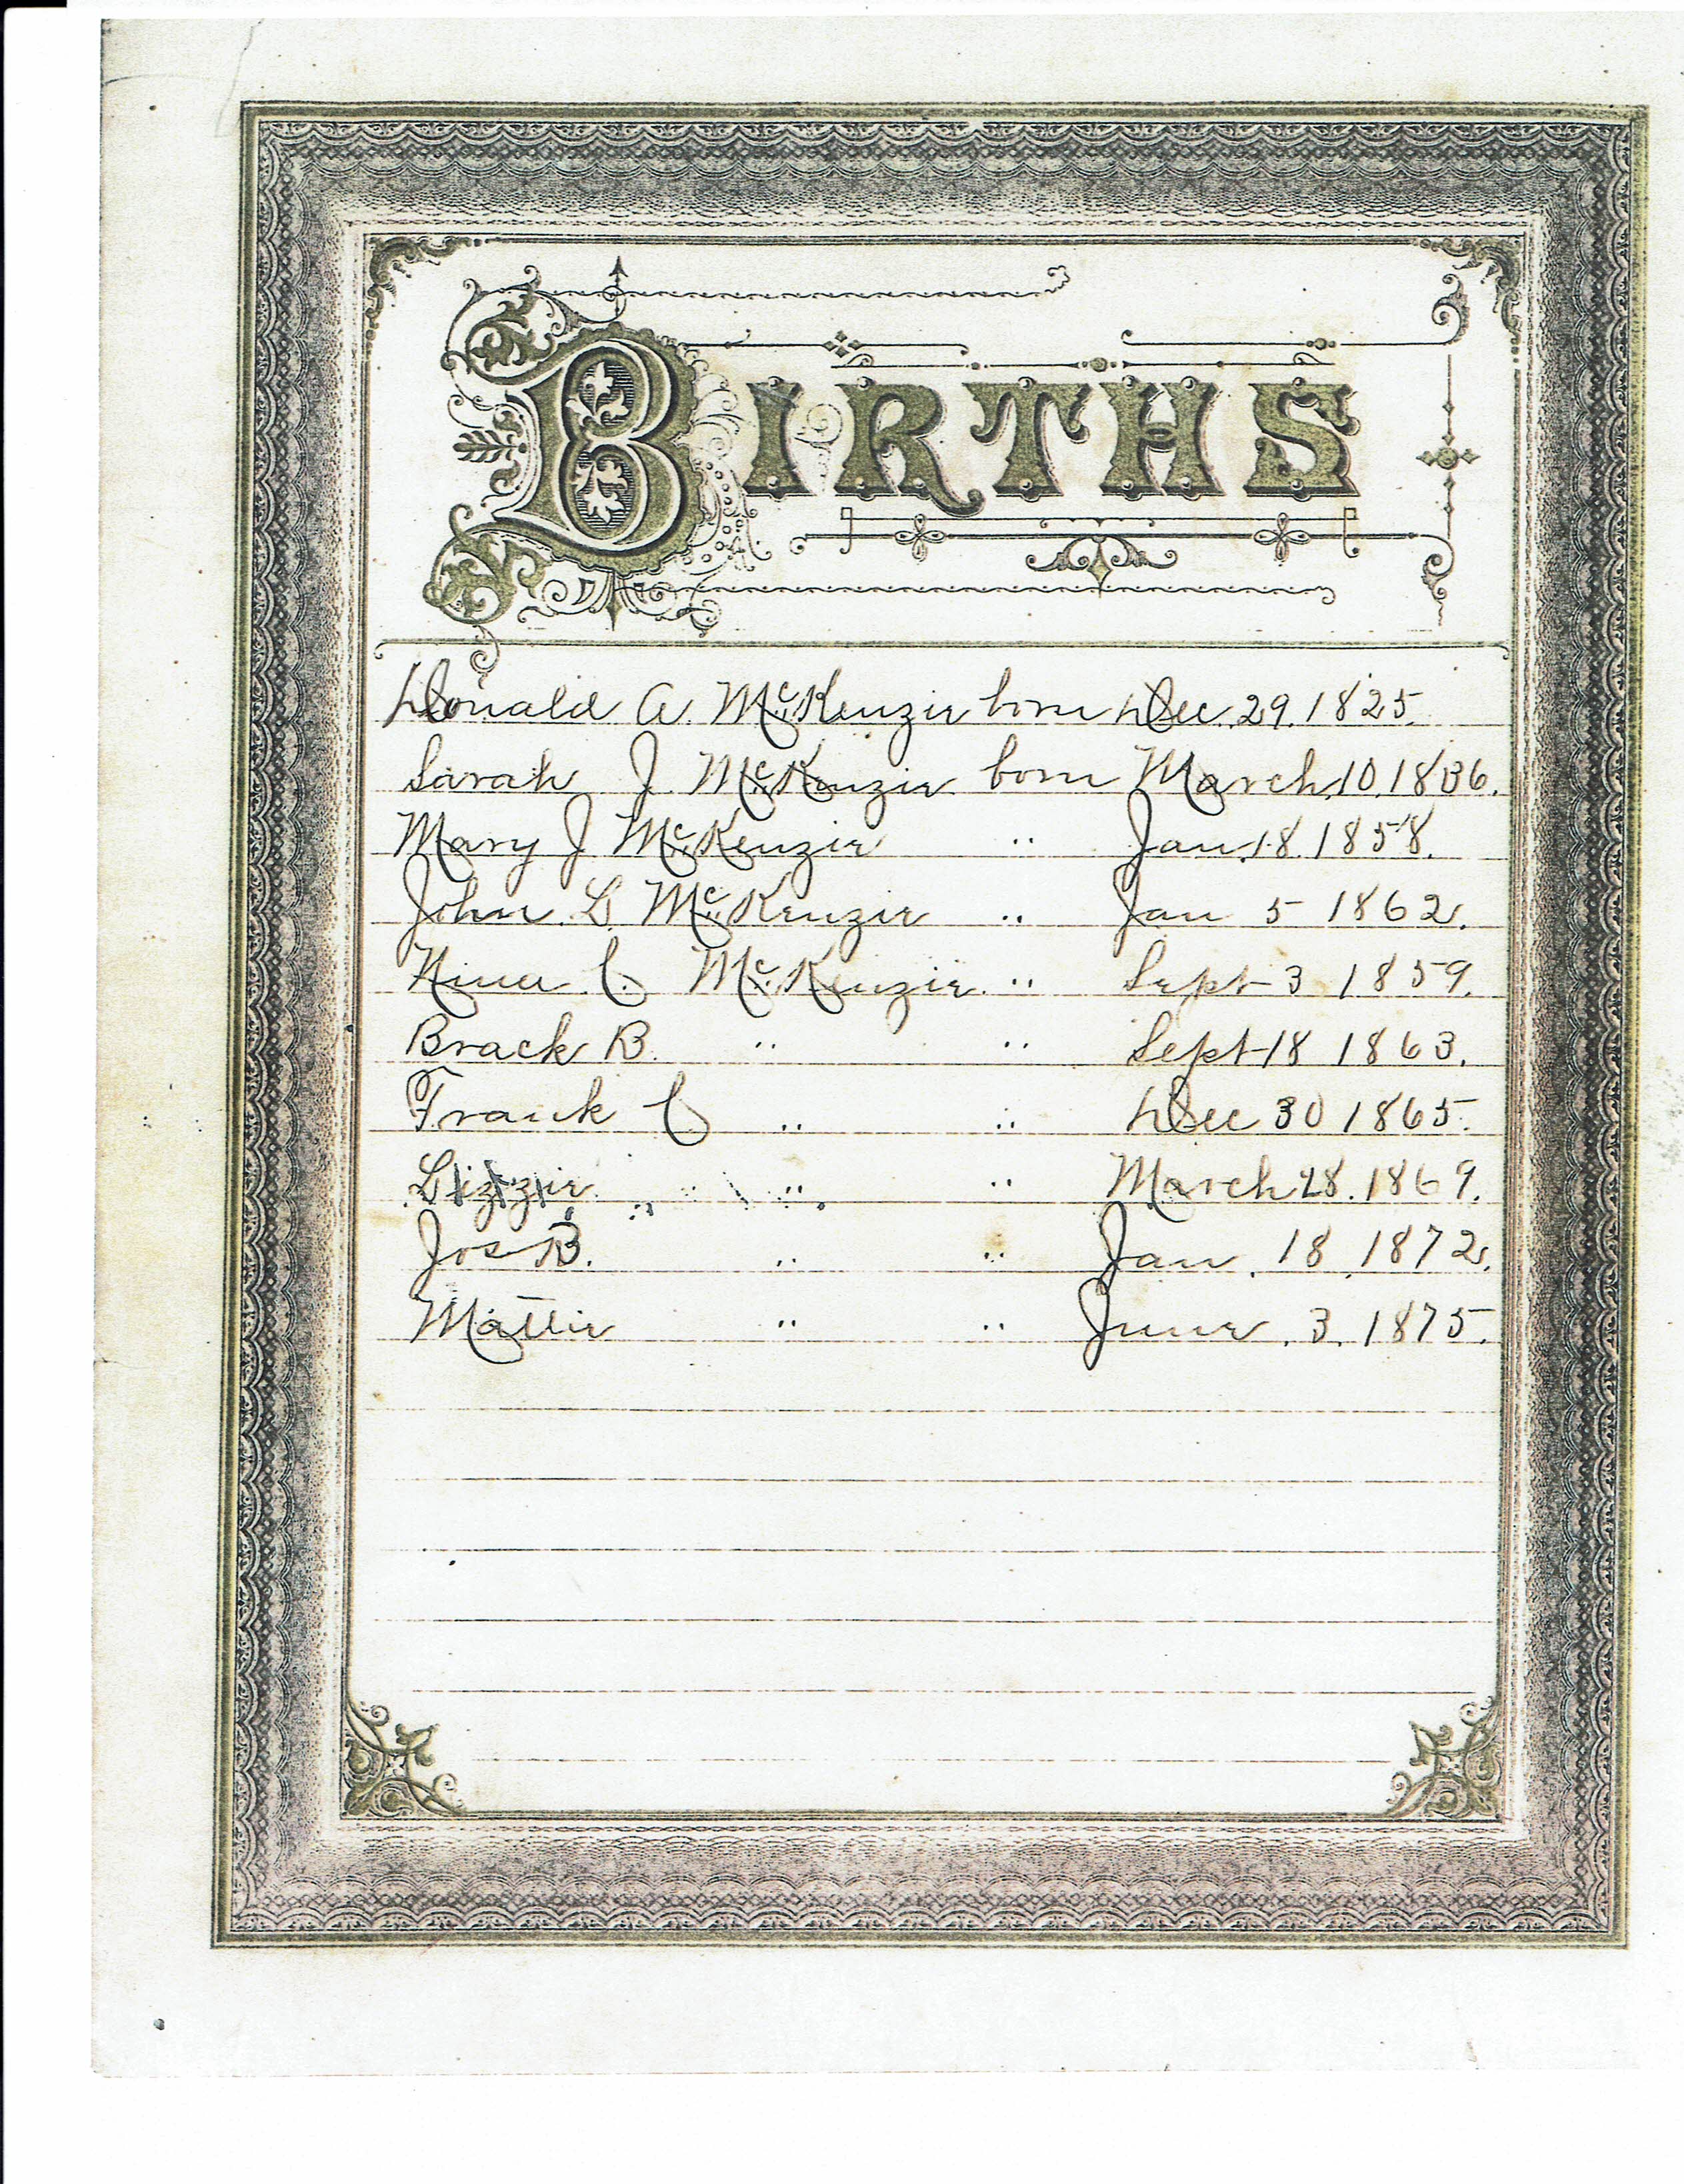 BIRTHS
Donald A. McKenzie born Dec. 29. 1825.
Sarah J. McKenzie born March 10. 1836.
Mary J McKenzie " Jan. 18. 1858.
John L McKenzie " Jan 5 1862.
Nina C. McKenzie " Sept 3 1859.
Brack B. " " Sept 18 1863.
Frank C " " Dec 30 1865.
Lizzie " " March 28. 1869.
Jos B. " " Jan. 18. 1872.
Mattie " " June. 3. 1875.